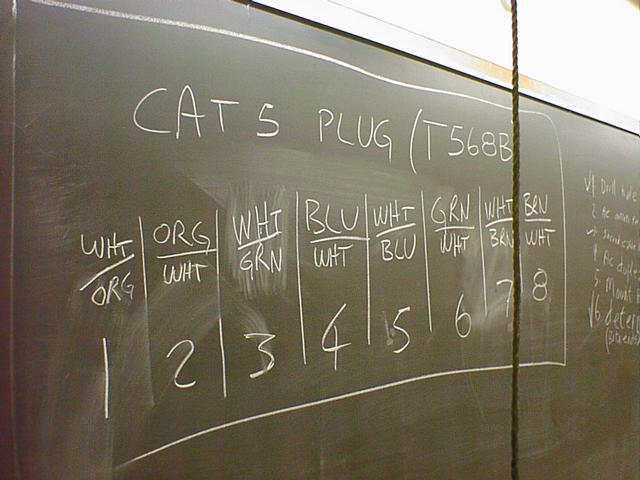 CAT 5 PLUG (T568B
WHT/ORG ORG/WHT WHT/GRN BLU/WHT WHT/BLU GRN/WHT WHT/BRN BRN/WHT
1 2 3 4 5 6 7 8
1 Drill hole
2
4
5 Mount
6 deter